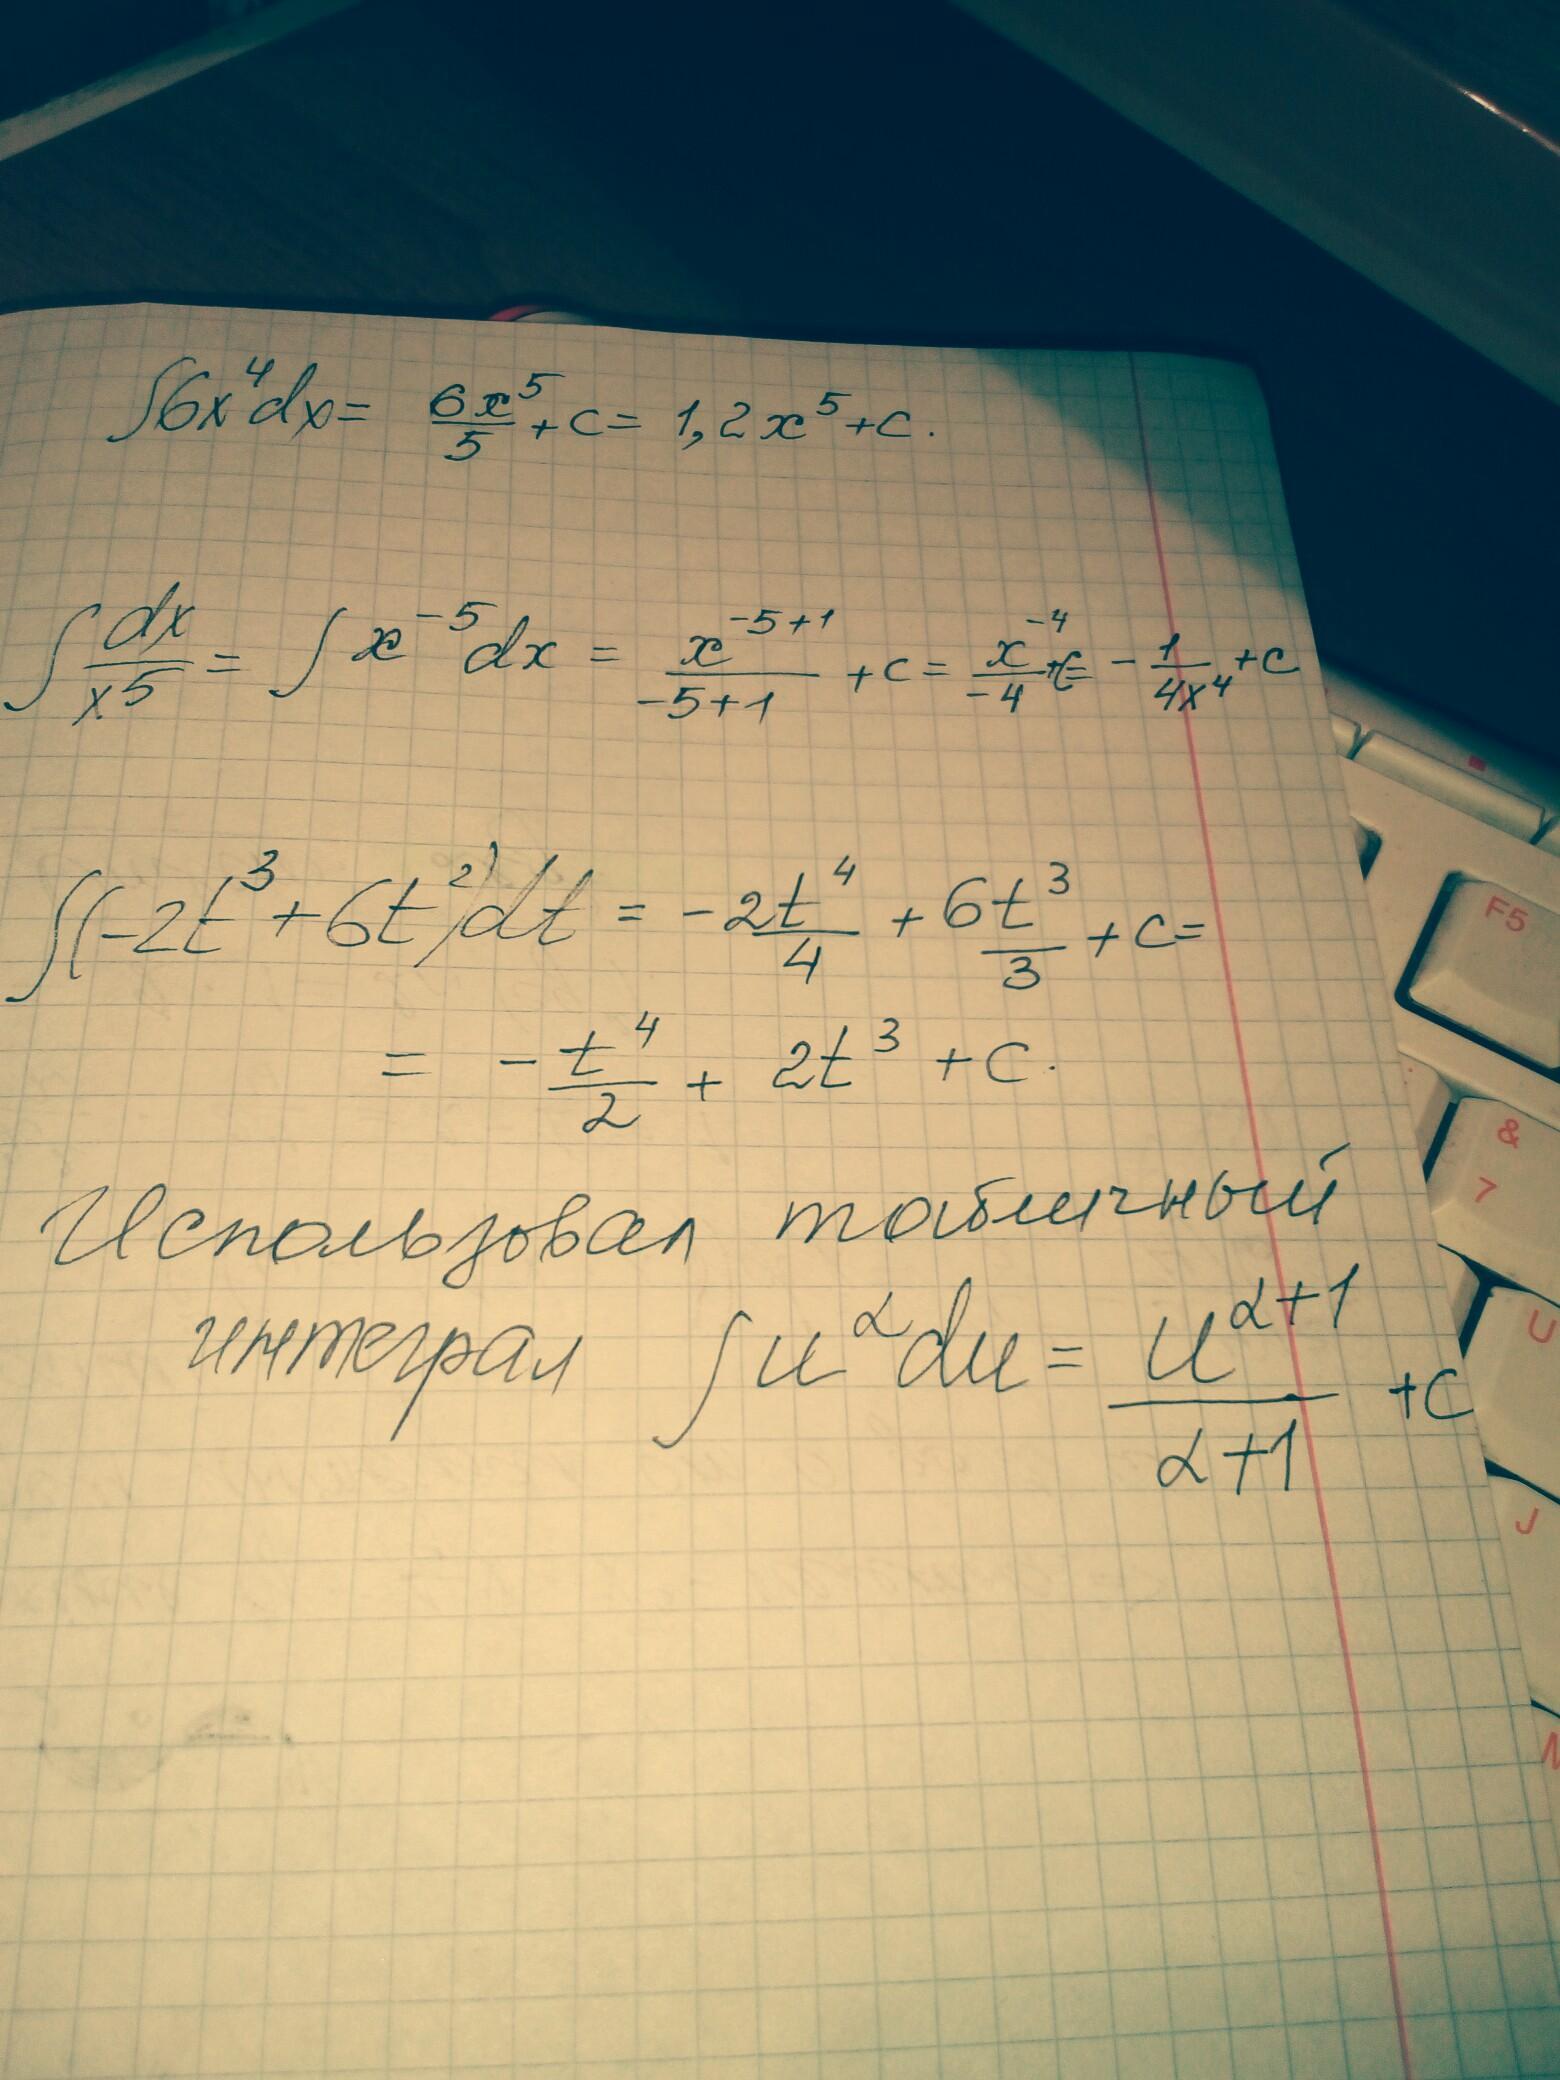 ∫6x⁴dx = 6x⁵/5 + c = 1,2x⁵ + c.
∫dx/x5 = ∫x⁻⁵dx = x⁻⁵⁺¹/-5+1 + c = x⁻⁴/-4 + c = -1/4x⁴ + c
∫(-2t³ + 6t²)dt = -2t⁴/4 + 6t³/3 + c =
= -t⁴/2 + 2t³ + c.
Использовал табличный
интеграл ∫u^α du = u^(α+1)/α+1 + c
F5
&
7
U
J